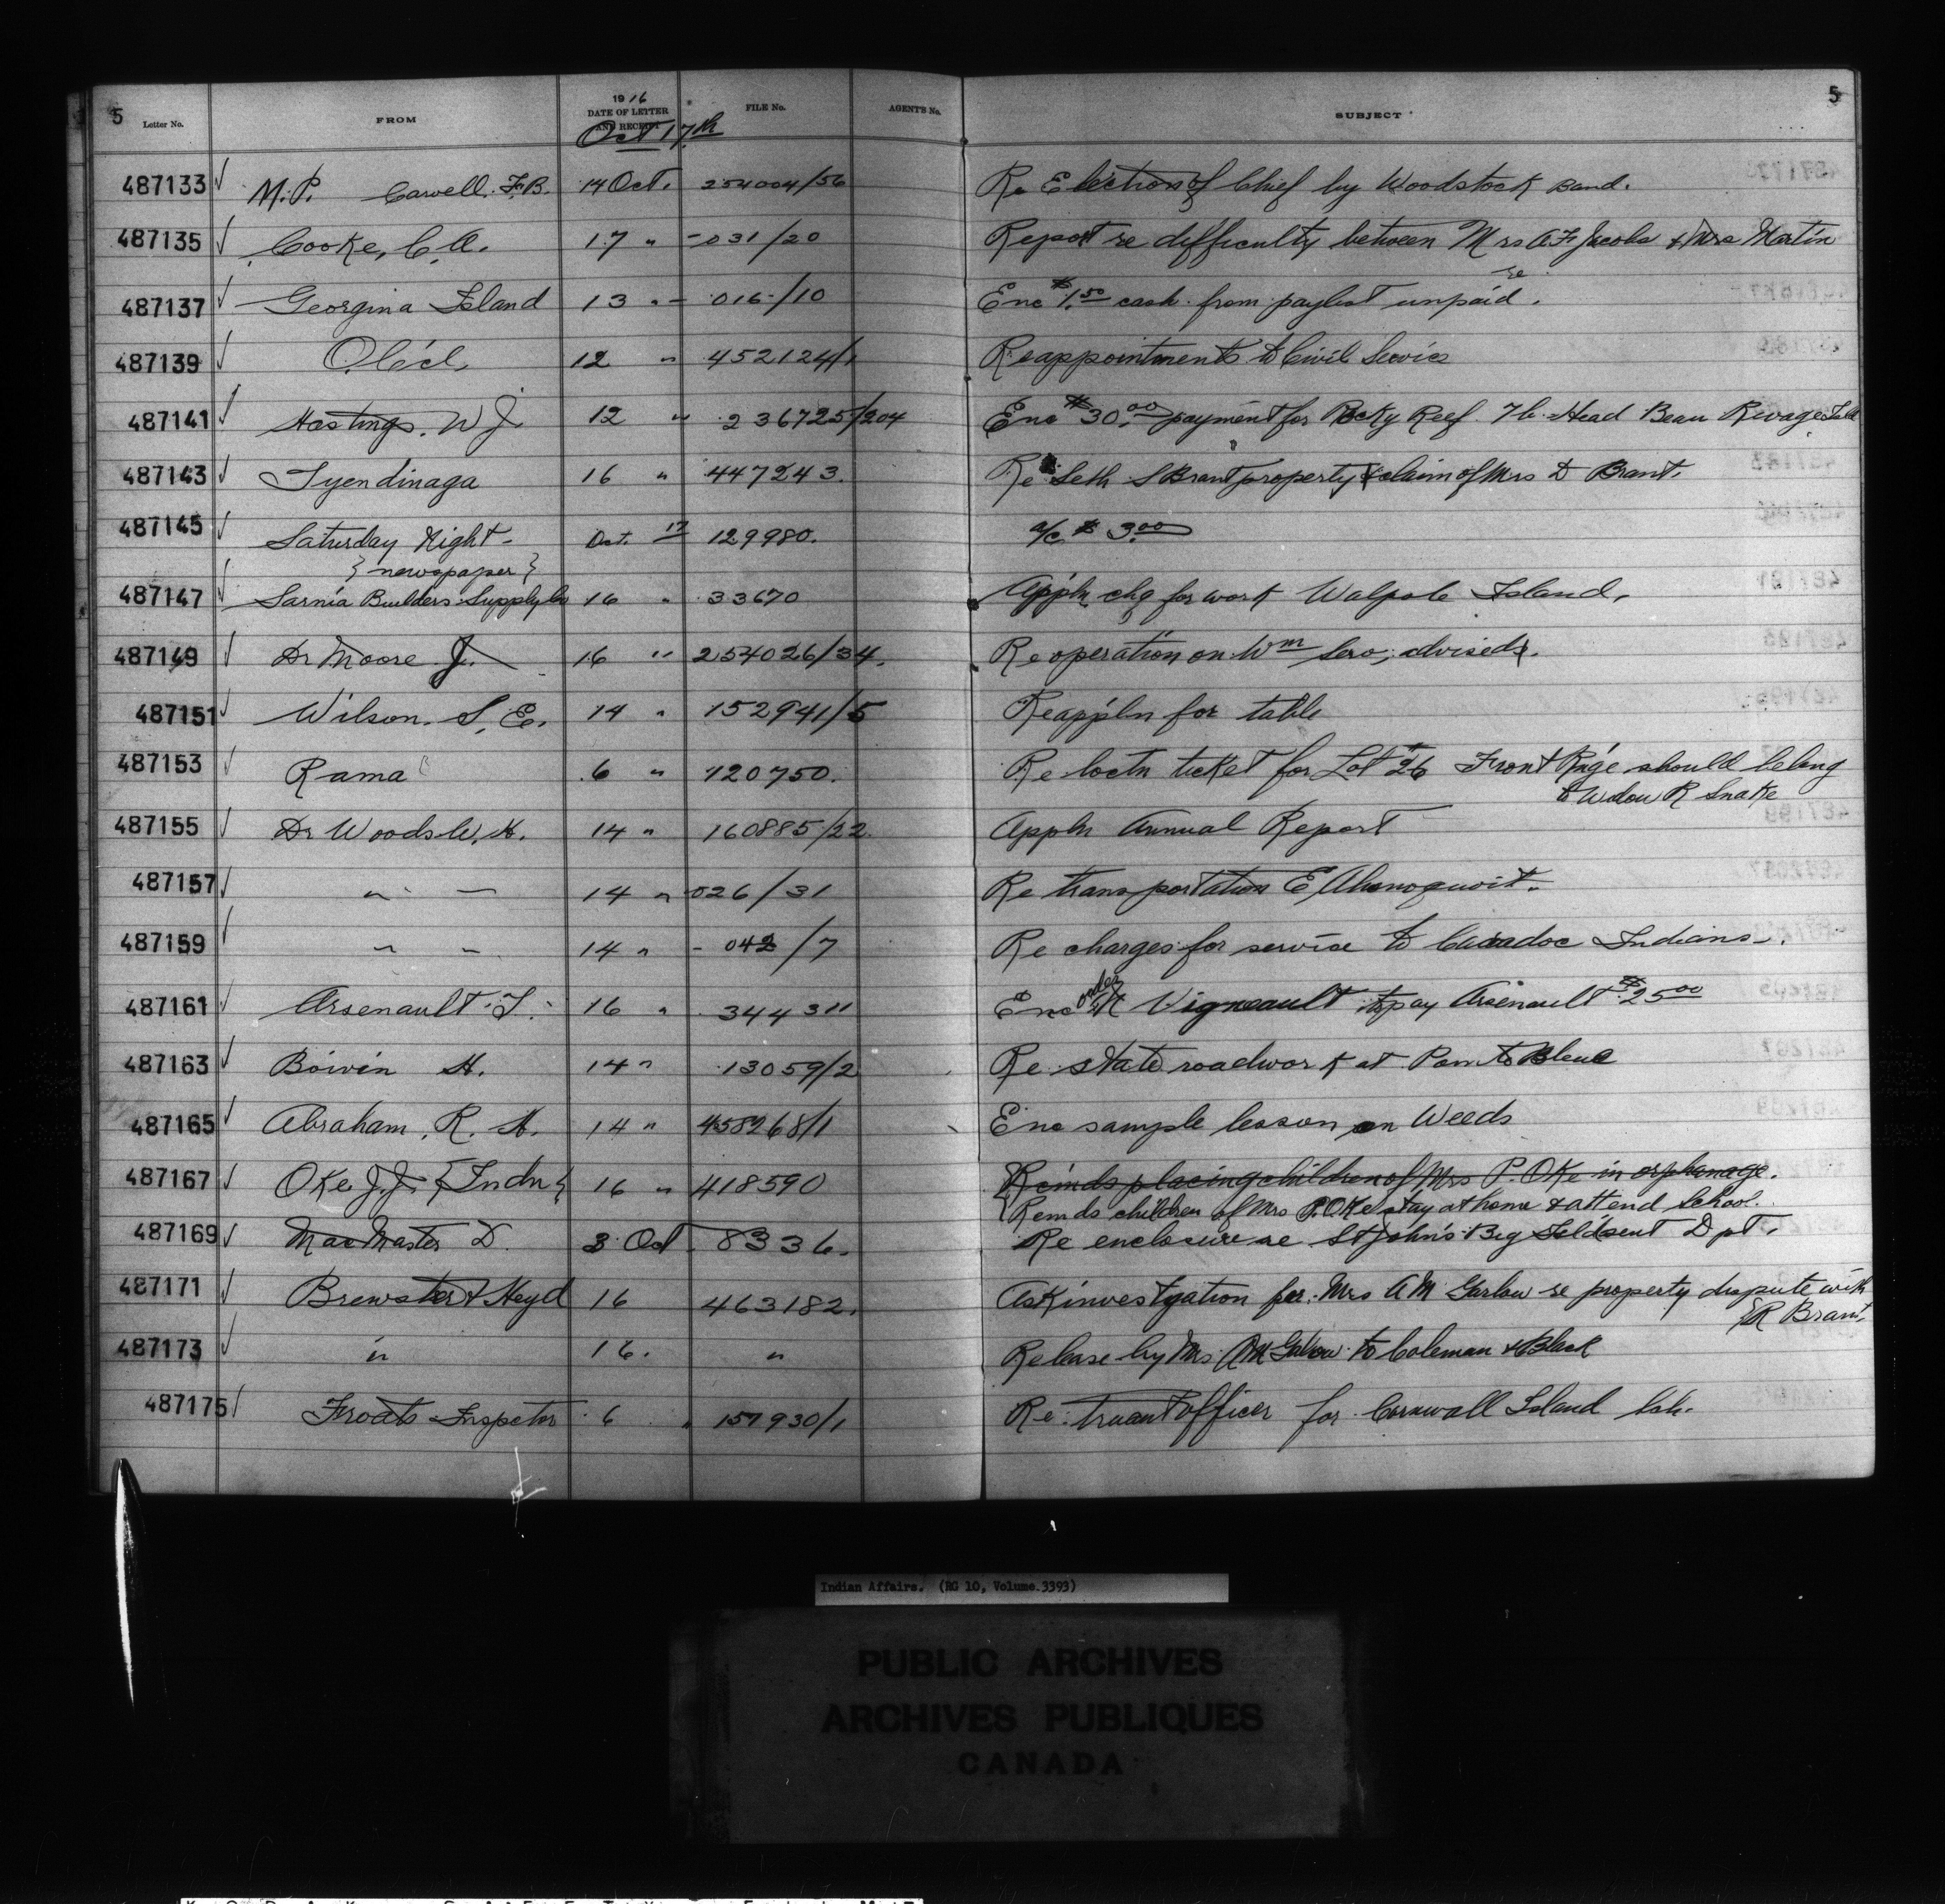 5
Letter No. FROM 1916 DATE OF LETTER AND RECEIPT FILE No. AGENT'S No. SUBJECT 5
Oct 17th
487133 M.P. Carvell. F.B. 14 Oct. 254004/56 Re Election of Chief by Woodstock Band.
487135 Cooke, C.A. 17 " -031/20 Report re difficulty between Mrs A.F. Jacobs & Mrs Martin
487137 Georgina Island 13 " - 016-/10 Enc $1.50 cash from paylist re unpaid.
487139 12 " 452124/1 Reappointments to Civil Service
487141 Hastings, W J. 12 " 236725/204 Enc $30.00 payment for Rocky Reef Head Beau Rivage Isld
487143 Tyendinaga 16 " 447243. Re Seth S Brant property & claim of Mrs D Brant.
487145 Saturday Night - Oct. 17 129980. a/c $3.00
{newspaper}
487147 Sarnia Builders Supply Co 16 " 33670 Appln chq for work Walpole Island.
487149 Dr Moore J. 16 " 254026/34. Re operation on Wm Sero; advised.
487151 Wilson. S, E. 14 " 152941/5 Re appln for table
487153 Rama 6 " 120750. Re loctn ticket for Lot #26 Front R'ge should belong
to Widow R Snake
487155 Dr Woods W. H. 14 " 160885/22. Appln Annual Report
487157 " " 14 " 026/31 Re transportation E
487159 " " 14 " - 042/7 Re charges for service to Caradoc Indians.
487161 Arsenault J. 16 " 344311 Enc order Vigneault to pay Arsenault $25.00
487163 Boivin H. 14 " 13059/2 Re state roadwork at Pointe Bleue
487165 Abraham, R. H. 14 " 458268/1 Enc sample lesson on Weeds
487167 Oke J.J. {Indn} 16 " 418590 Reinds placing children of Mrs P. Oke in orphanage.
Reinds children of Mrs P. Oke stay at home & attend School.
487169 MacMaster D. 3 Oct 8336. Re enclosure re St John's Big Isld sent Dpt.
487171 Brewster & Heyd 16 463182. Ask investgation for Mrs A M Garlow re property dispute with
R Brant.
487173 " 16. " Release by Mrs A M Galow to Coleman & Black
487175 Froats Inspector 6 " 157930/1 Re truant officer for Cornwall Island Ish.
Indian Affairs. (RG 10, Volume 3393)
PUBLIC ARCHIVES
ARCHIVES PUBLIQUES
CANADA